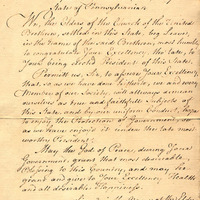 State of Pennsylvania.
We, the Elders of the Church of the United
Brethren, settled in this State, beg Leave,
in the name of the said Brethren, most humbly
to congratulate Your Excellency, the late, by
Your being President of this State.
Permit us, Sir, to assure Your Excellency,
that, as we have done hitherto, we and every
Member of our Society, will always demean
ourselves as true and faithful subjects of
this State, and by our uniform Conduct, hope
to enjoy the Protection of Government, so
as we have enjoyed it under the late most
worthy President.
May the God of Peace, during Your
Government, grant that most desirable
Blessing to this Country, and may
grant and give to Your Excellency, Health
and all desirable Happiness.
of the State